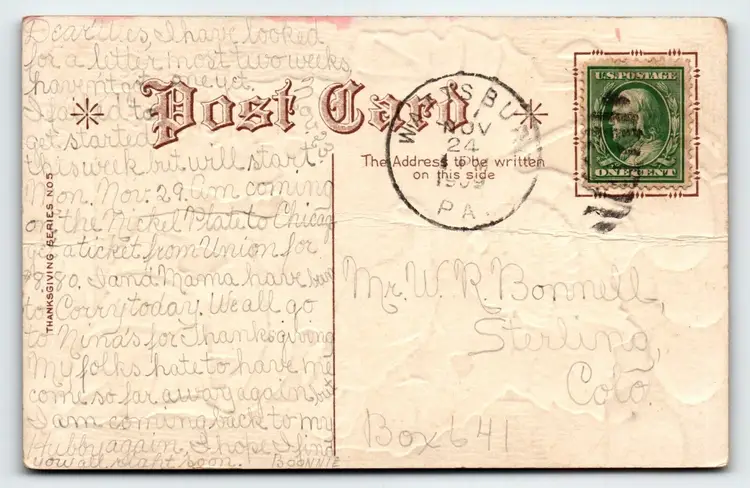 Dearities, I have looked
for a letter most two weeks,
haven't got one yet.
I failed to
get started
this week but will start
Mon. Nov. 29. Am coming
on the Nickel Plate to Chicago
a ticket from Union for
I and Mama have been
to Corry today. We all go
to Nina's for Thanksgiving
My folks hate to have me
come so far away again, but
I am coming back to my
Hubby again. I hope I find
you all right soon. BOONNIE
THANKSGIVING SERIES NO5
Post Card
The Address to be written
on this side
NOV
24
1909
PA.
U.S.POSTAGE
ONE CENT
Mr. W. R. Bonnell,
Sterling,
Colo.
Box 641